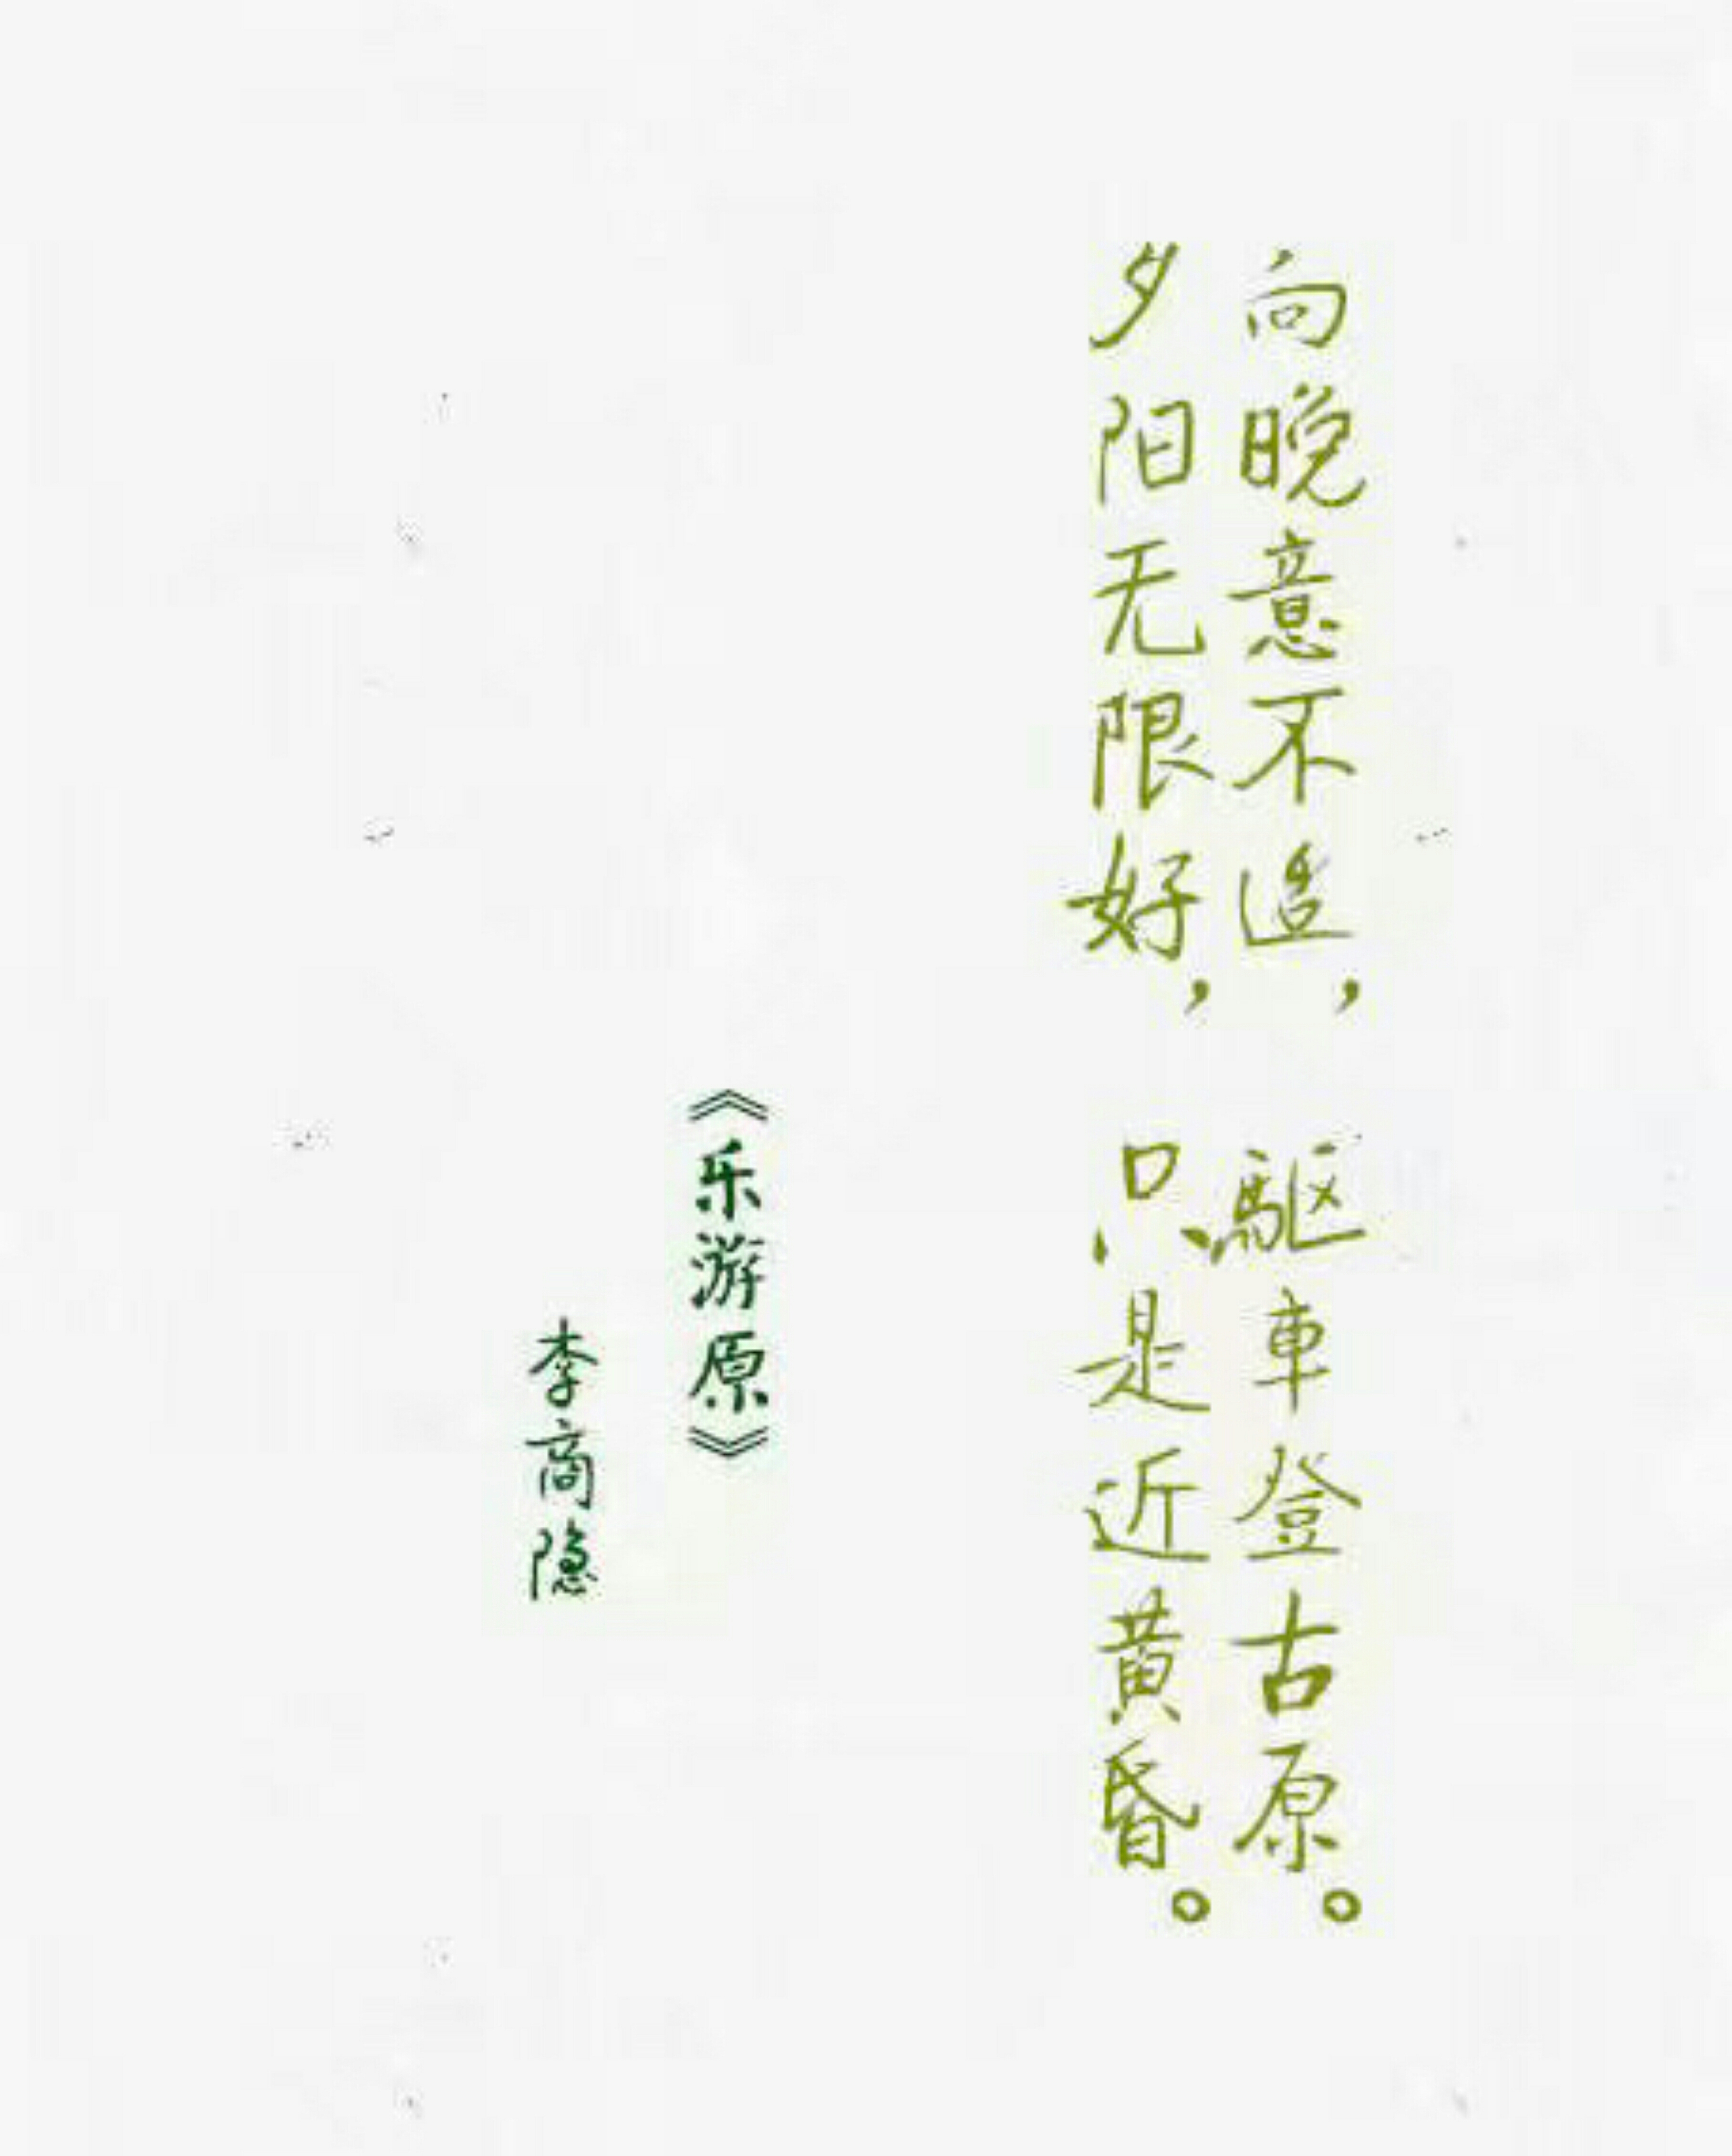 向晚意不适，駆車登古原。
夕阳无限好，只是近黄昏。
《乐游原》
李商隐